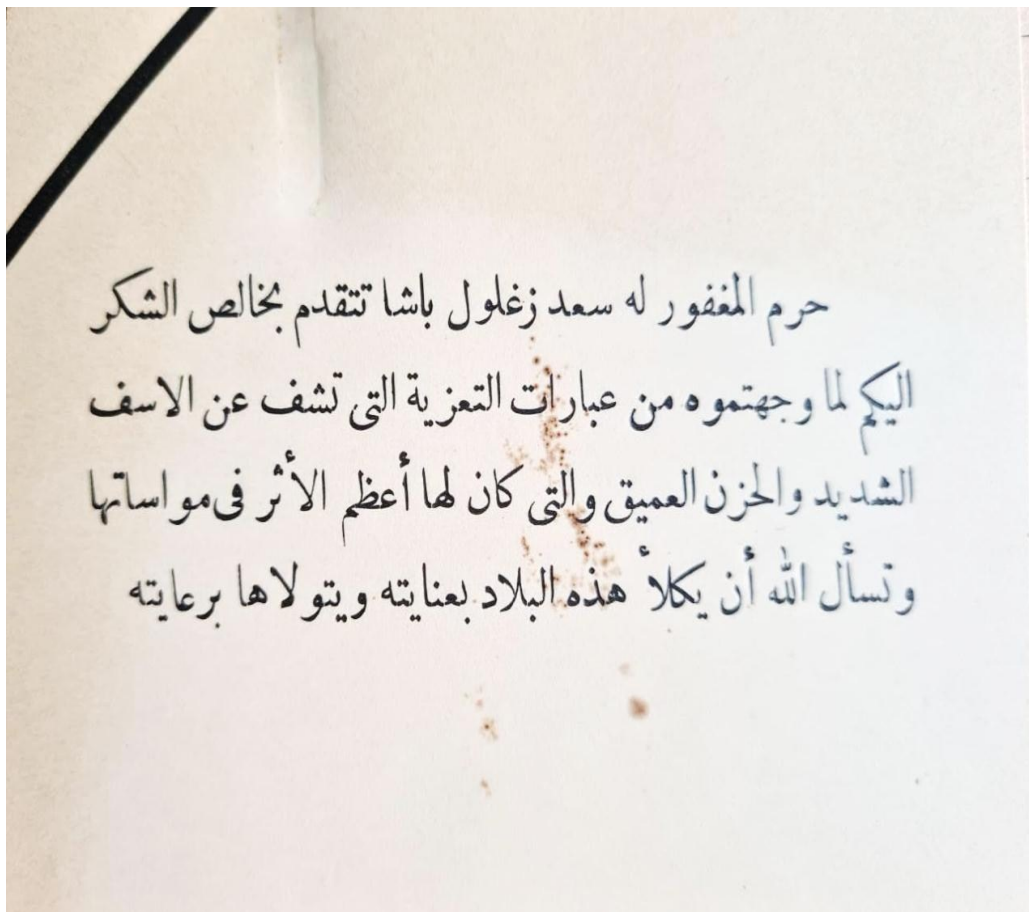 حرم المغفور له سعد زغلول باشا تتقدم بخالص الشكر
اليكم لما وجهتموه من عبارات التعزية التى تشف عن الاسف
الشديد والحزن العميق والتى كان لها أعظم الأثر فى مواساتها
وتسأل الله أن يكلأ هذه البلاد بعنايته ويتولاها برعايته